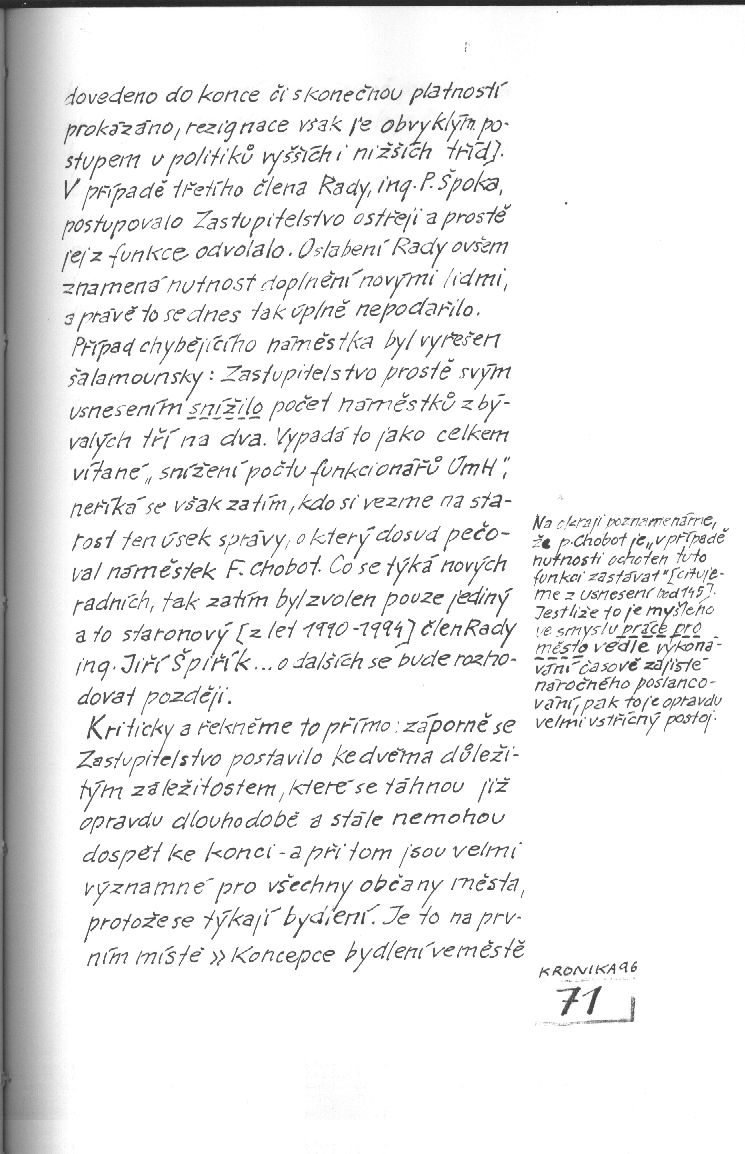 dovedeno do konce či s konečnou platností
prokázáno, rezignace však je obvyklým po-
stupem u politiků vyšších i nižších tříd].
V případě třetího člena Rady, ing. P. Špoka,
postupovalo Zastupitelstvo ostřeji a prostě
jej z funkce odvolalo. Oslabení Rady ovšem
znamená nutnost doplnění novými lidmi,
a právě to se dnes tak úplně nepodařilo.
Případ chybějícího náměstka byl vyřešen
šalamounsky: Zastupitelstvo prostě svým
usnesením snížilo počet náměstků z bý-
valých tří na dva. Vypadá to jako celkem
vítané „snížení počtu funkcionářů ÚmH",
neříká se však zatím, kdo si vezme na sta-
rost ten úsek správy, o který dosud pečo-
val náměstek F. Chobot. Co se týká nových
radních, tak zatím byl zvolen pouze jediný
a to staronový [z let 1990-1994] člen Rady
ing. Jiří Špiřík... o dalších se bude rozho-
dovat později.
Kriticky a řekněme to přímo: záporně se
Zastupitelstvo postavilo ke dvěma důleži-
tým záležitostem, které se táhnou již
opravdu dlouhodobě a stále nemohou
dospět ke konci - a přitom jsou velmi
významné pro všechny občany města,
protože se týkají bydlení. Je to na prv-
ním místě » Koncepce bydlení ve městě
Na okraji poznamenáme,
že p. Chobot je „v případě
nutnosti ochoten tuto
funkci zastávat" [cituje-
me z usnesení bod 145].
Jestliže to je myšleno
ve smyslu práce pro
město vedle vykoná-
vání časově zajisté
náročného poslanco-
vání, pak to je opravdu
velmi vstřícný postoj.
KRONIKA 96
71